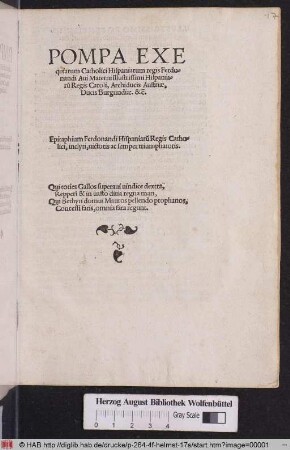 POMPA EXE
quiarum Catholici Hispaniarum regis Ferdi-
nandi Aui Materni illustrissimi Hispania-
rũ Regis Caroli, Archiducis Austriæ,
Ducis Burgundiæ. &c.
Epitaphium Ferdonandi Hispaniarũ Regis Catho-
lici, inclyti, inuicti ac semper triumphatoris.
Qui toties Gallos superaui uindice dextra,
Repperi & in uasto clara regna mari,
Qui Bethyn domui Mauros pellendo prophanos,
Concessi fatis, omnia fata regunt.
17
Herzog August Bibliothek Wolfenbüttel
0 1 2 3 4
Gray Scale
© HAB http://diglib.hab.de/drucke/p-264-4f-helmst-17s/start.htm?image=00001